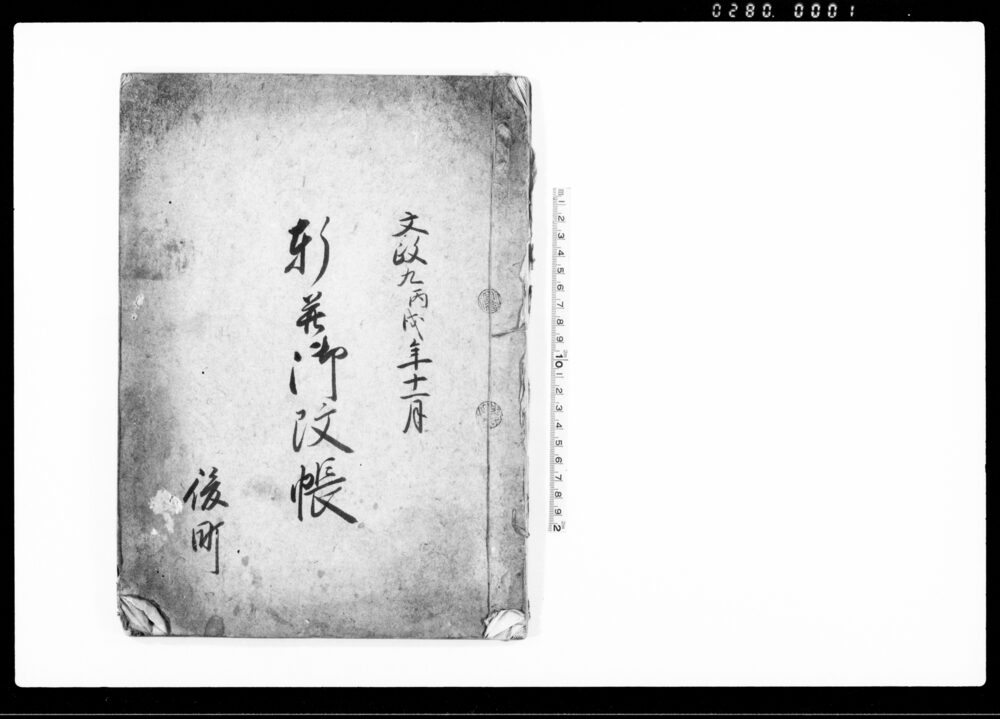 0280. 0001
文政九丙戌年十一月
御改帳
後町
1 2 3 4 5 6 7 8 9 10 1 2 3 4 5 6 7 8 9 2